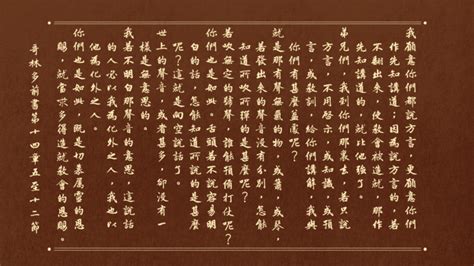 我願意你們都說方言，更願意你們
作先知講道；因為說方言的，若
不翻出來，使教會被造就，那作
先知講道的，就比他強了。
弟兄們，我到你們那裏去，若只說
方言，不用啟示，或知識，或預
言，或教訓，給你們講解，我與
你們有甚麼益處呢？
就是那有聲無氣的物，或簫，或琴，
若發出來的聲音沒有分別，怎能
知道所吹所彈的是甚麼呢？
若吹無定的號聲，誰能預備打仗呢？
你們也是如此，舌頭若不說容易明
白的話，怎能知道所說的是甚麼
呢？這就是向空說話了。
世上的聲音，或者甚多，卻沒有一
樣是無意思的。
我若不明白那聲音的意思，這說話
的人必以我為化外之人，我也以
他為化外之人。
你們也是如此，既是切慕屬靈的恩
賜，就當求多得造就教會的恩賜。
哥林多前書第十四章五至十二節